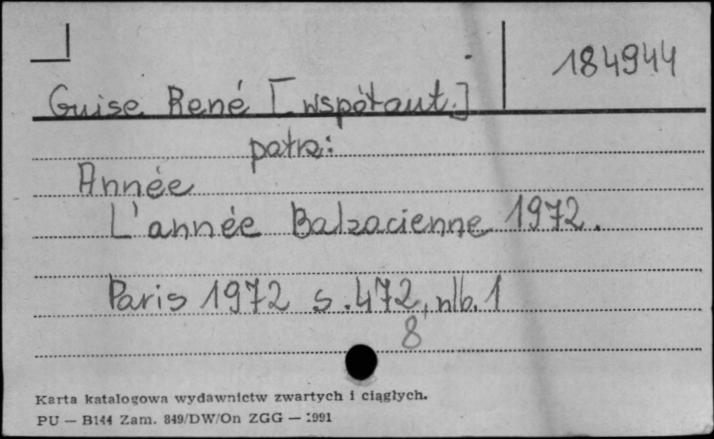 184944
Guise René [współaut.]
patrz:
Année
L'année Balzacienne 1972.
Paris 1972 s. 472, nlb. 1
8
Karta katalogowa wydawnictw zwartych i ciągłych.
PU — B144 Zam. 849/DW/On ZGG — 1991